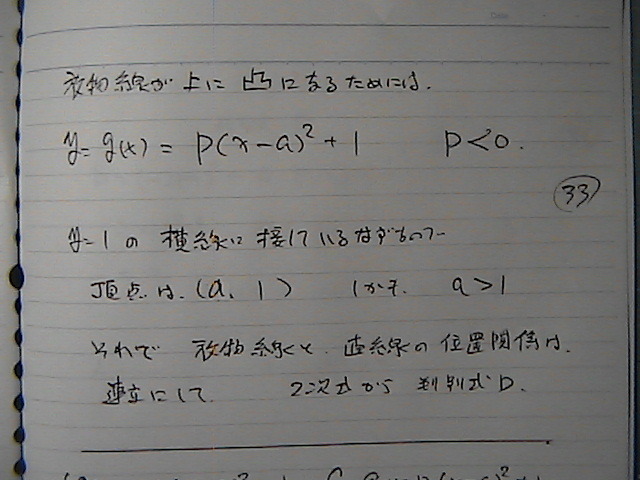 放物線が 上に 凸になるためには.
y=g(x)= p(x-a)²+1 p<0.
33
y=1の 横線に 接しているはずなので
頂点は. (a, 1) しかも. a>1
それで 放物線と. 直線の 位置関係は.
連立にして. 2次式から 判別式D.